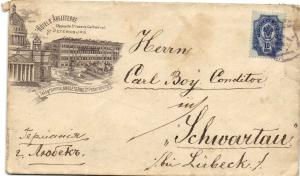 HÔTEL D'ANGLETERRE
Opposite St Isaac's Cathedral
ST PETERSBURG
Herrn
Carl Boÿ. Conditor
in
"Schwartau"
/bei Lübeck/.
Германія
г. Любекъ.